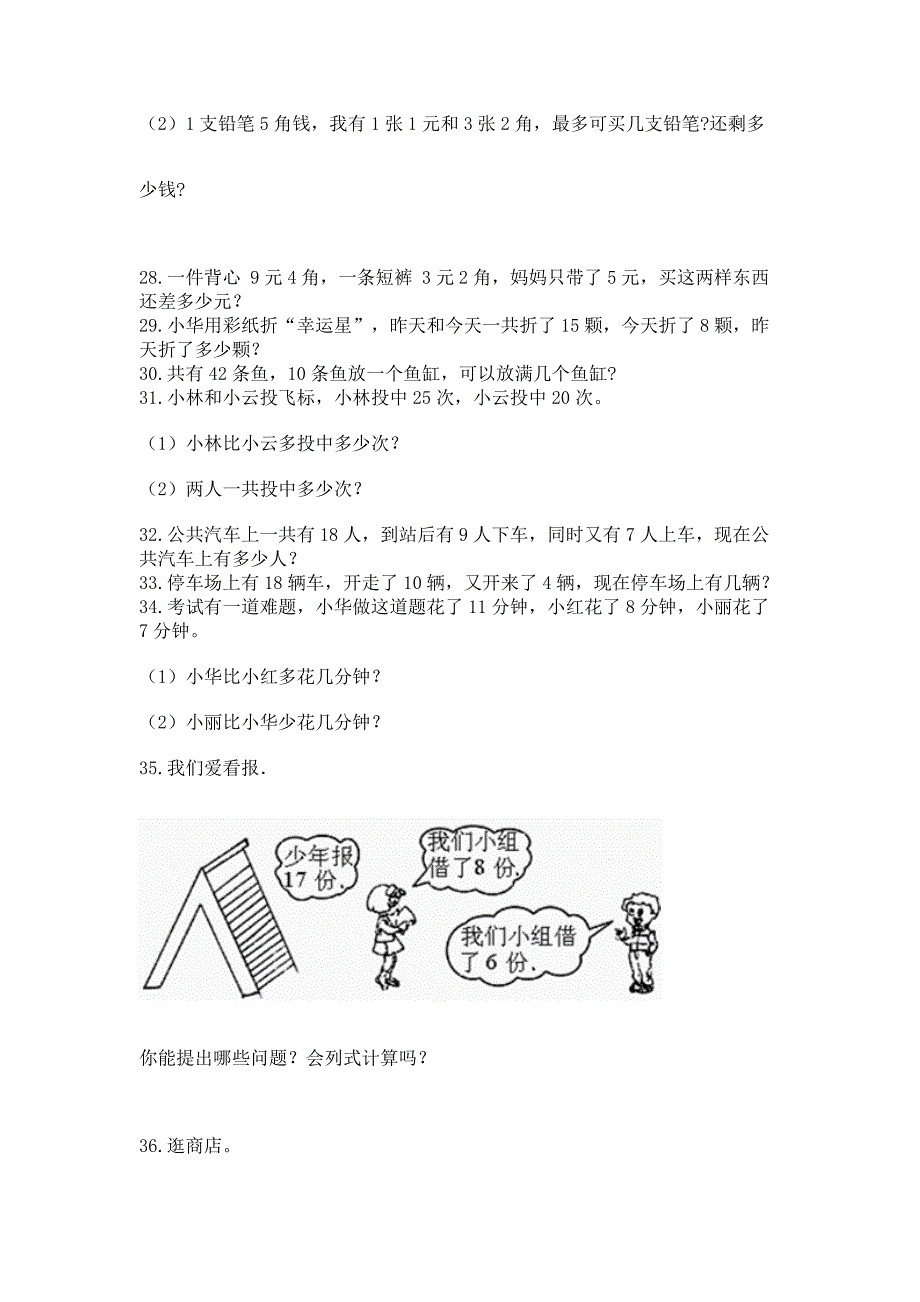 （2）1支铅笔5角钱，我有1张1元和3张2角，最多可买几支铅笔?还剩多
少钱?
28.一件背心 9元4角，一条短裤 3元2角，妈妈只带了5元，买这两样东西
还差多少元？
29.小华用彩纸折“幸运星”，昨天和今天一共折了15颗，今天折了8颗，昨
天折了多少颗？
30.共有42条鱼，10条鱼放一个鱼缸，可以放满几个鱼缸?
31.小林和小云投飞标，小林投中25次，小云投中20次。
（1）小林比小云多投中多少次？
（2）两人一共投中多少次？
32.公共汽车上一共有18人，到站后有9人下车，同时又有7人上车，现在公
共汽车上有多少人？
33.停车场上有18辆车，开走了10辆，又开来了4辆，现在停车场上有几辆？
34.考试有一道难题，小华做这道题花了11分钟，小红花了8分钟，小丽花了
7分钟。
（1）小华比小红多花几分钟？
（2）小丽比小华少花几分钟？
35.我们爱看报．
少年报
17份．
我们小组
借了8份．
我们小组借
了6份．
你能提出哪些问题？会列式计算吗？
36.逛商店。